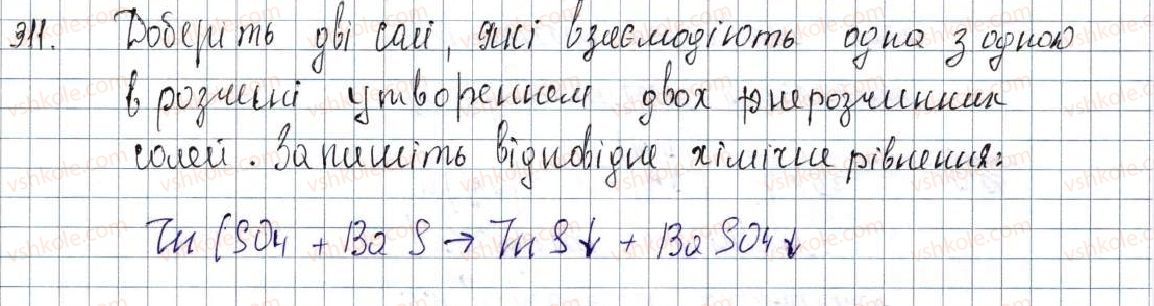 311. Доберіть дві солі, які взаємодіють одна з одною
в розчині утворенням двох нерозчинних
солей. Запишіть відповідне хімічне рівняння:
Zn (SO4 + Ba S → Zn S↓ + Ba SO4↓